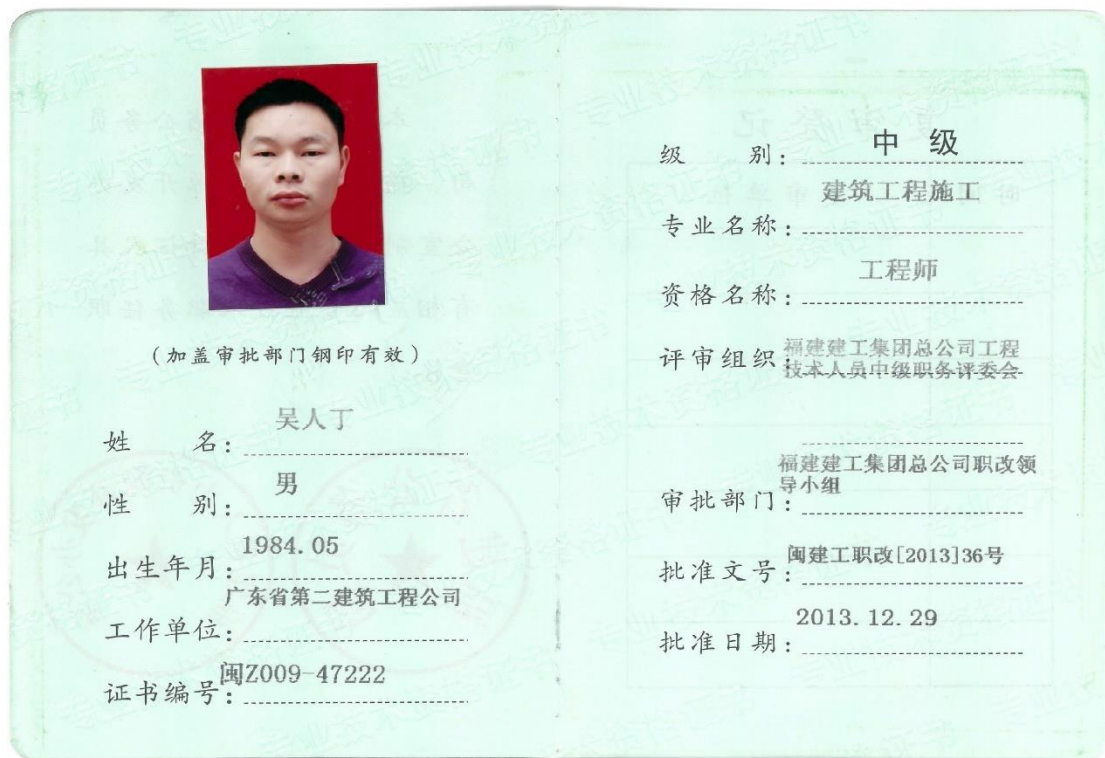 (加盖审批部门钢印有效)
姓 名: 吴人丁
性 别: 男
出生年月: 1984.05
工作单位: 广东省第二建筑工程公司
证书编号: 闽Z009-47222
级 别: 中 级
专业名称: 建筑工程施工
资格名称: 工程师
评审组织: 福建建工集团总公司工程
技术人员中级职务评委会
审批部门: 福建建工集团总公司职改领
导小组
批准文号: 闽建工职改[2013]36号
批准日期: 2013.12.29